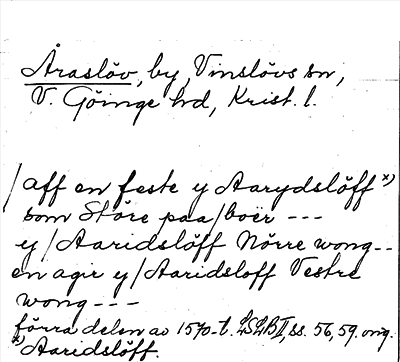 Åraslöv, by, Vinslövs sn,
V. Göinge hd, Krist. l.
/ aff en feste y Aarydslöff x)
som Störe paa/boër ---
y/Aaridslöff Nörre wong--
en agir y/Aaridsloff Vestre
wong ---
förra delen av 1570-t. LSLB II, ss. 56, 59. orig.
x) Aaridslöff.